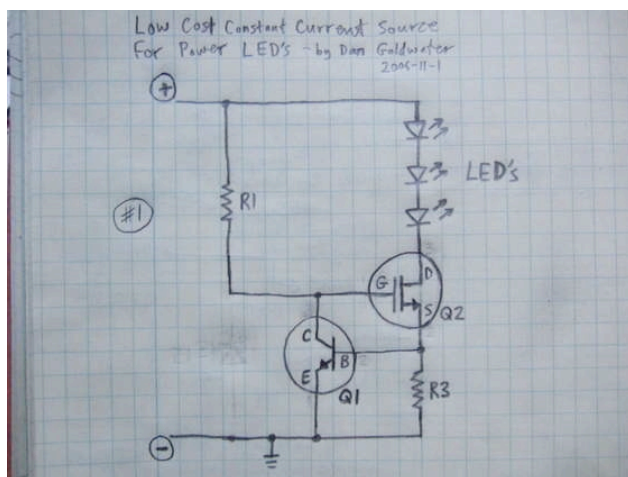 Low Cost Constant Current Source
For Power LED's - by Dan Goldwater
2006-11-1
+
R1
LED's
#1
G
D
S
Q2
C
B
E
Q1
R3
-